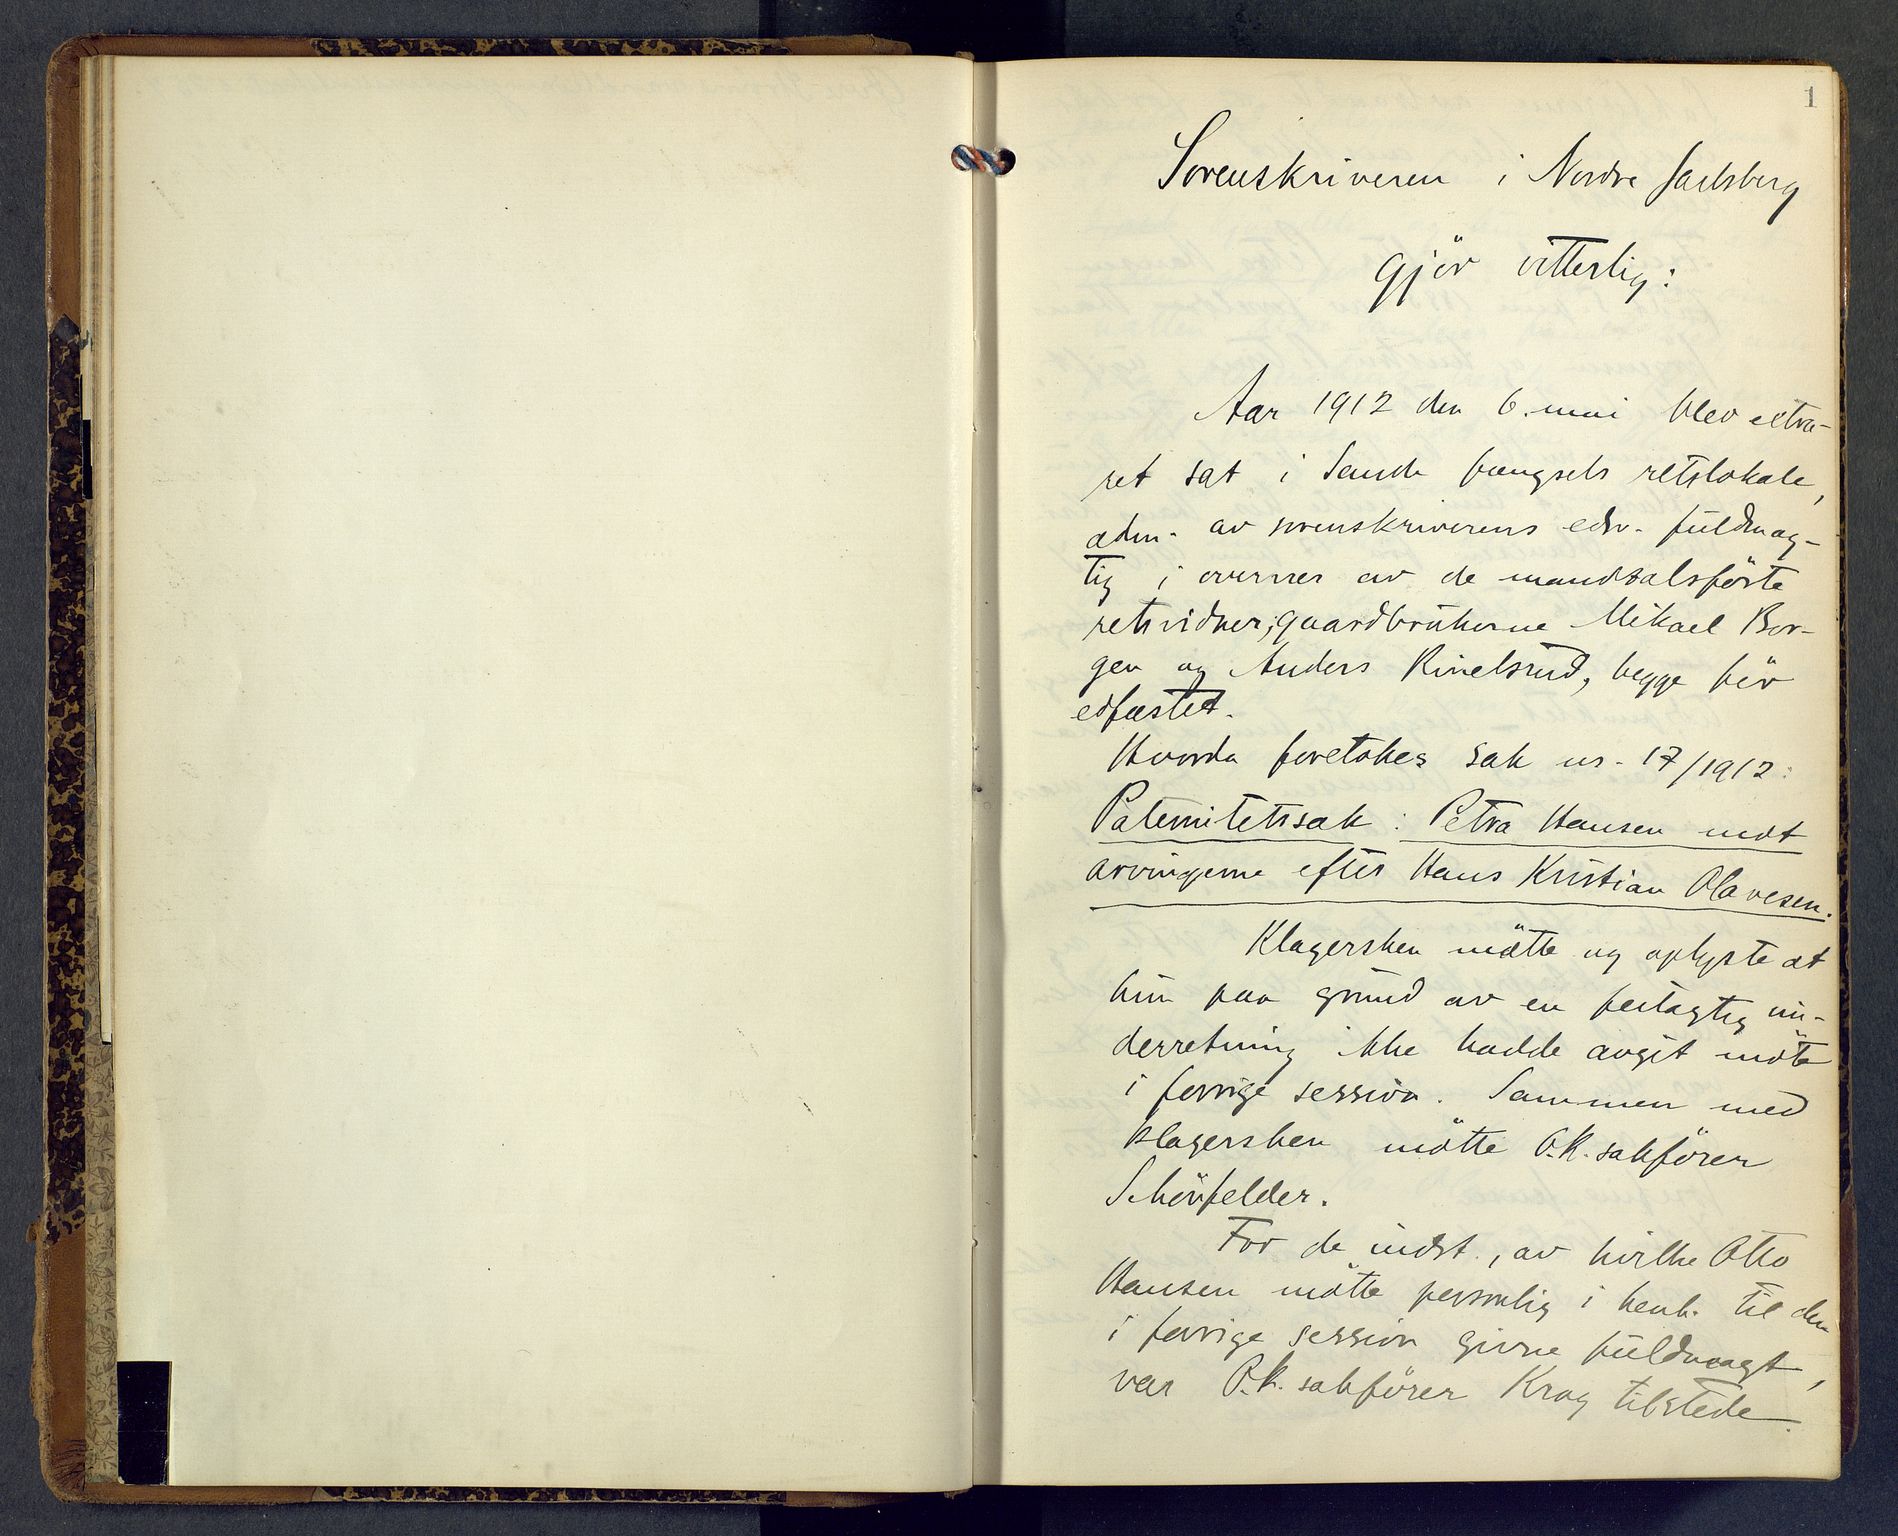 1
Sorenskriveren i Nordre Jarlsberg
gjör vitterlig:
Aar 1912 den 6. mai blev extra-
ret sat i Sande fængsels retslokale,
adm. av sorenskriverens edsv. fuldmæg-
tig i overvær av de mandtalsförte
retsvidner, gaardbrukerne Mikael Bor-
gen og Anders Kivelsrud, begge för
edfæstet.
Hvorda foretokes sak nr. 17/1912:
Paternitetssak: Petra Hansen mot
arvingerne efter Hans Kristian Olavesen.
Klagersken mötte og oplyste at
hun paa grund av en feilagtig un-
derretning ikke hadde avgit möte
i forrige session. Sammen med
klagersken mötte O.R.sakförer
Schönfelder.
For de indst., av hvilke Otto
Hansen mötte personlig i henh. til den
i forrige session givne fuldmagt,
var O.R.sakförer Krag tilstede.